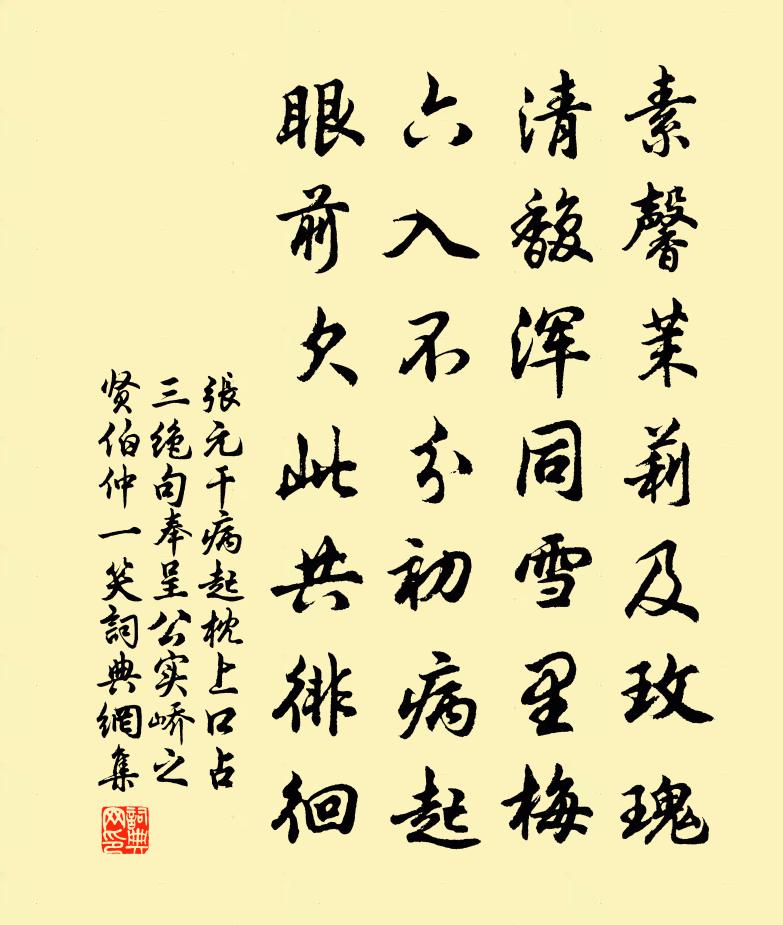 素馨茉莉及玫瑰
清馥浑同雪里梅
六入不分初病起
眼前欠此共徘徊
張元干病起枕上口占
三绝句奉呈公实峤之
贤伯仲一笑詞典網集
詞典网印